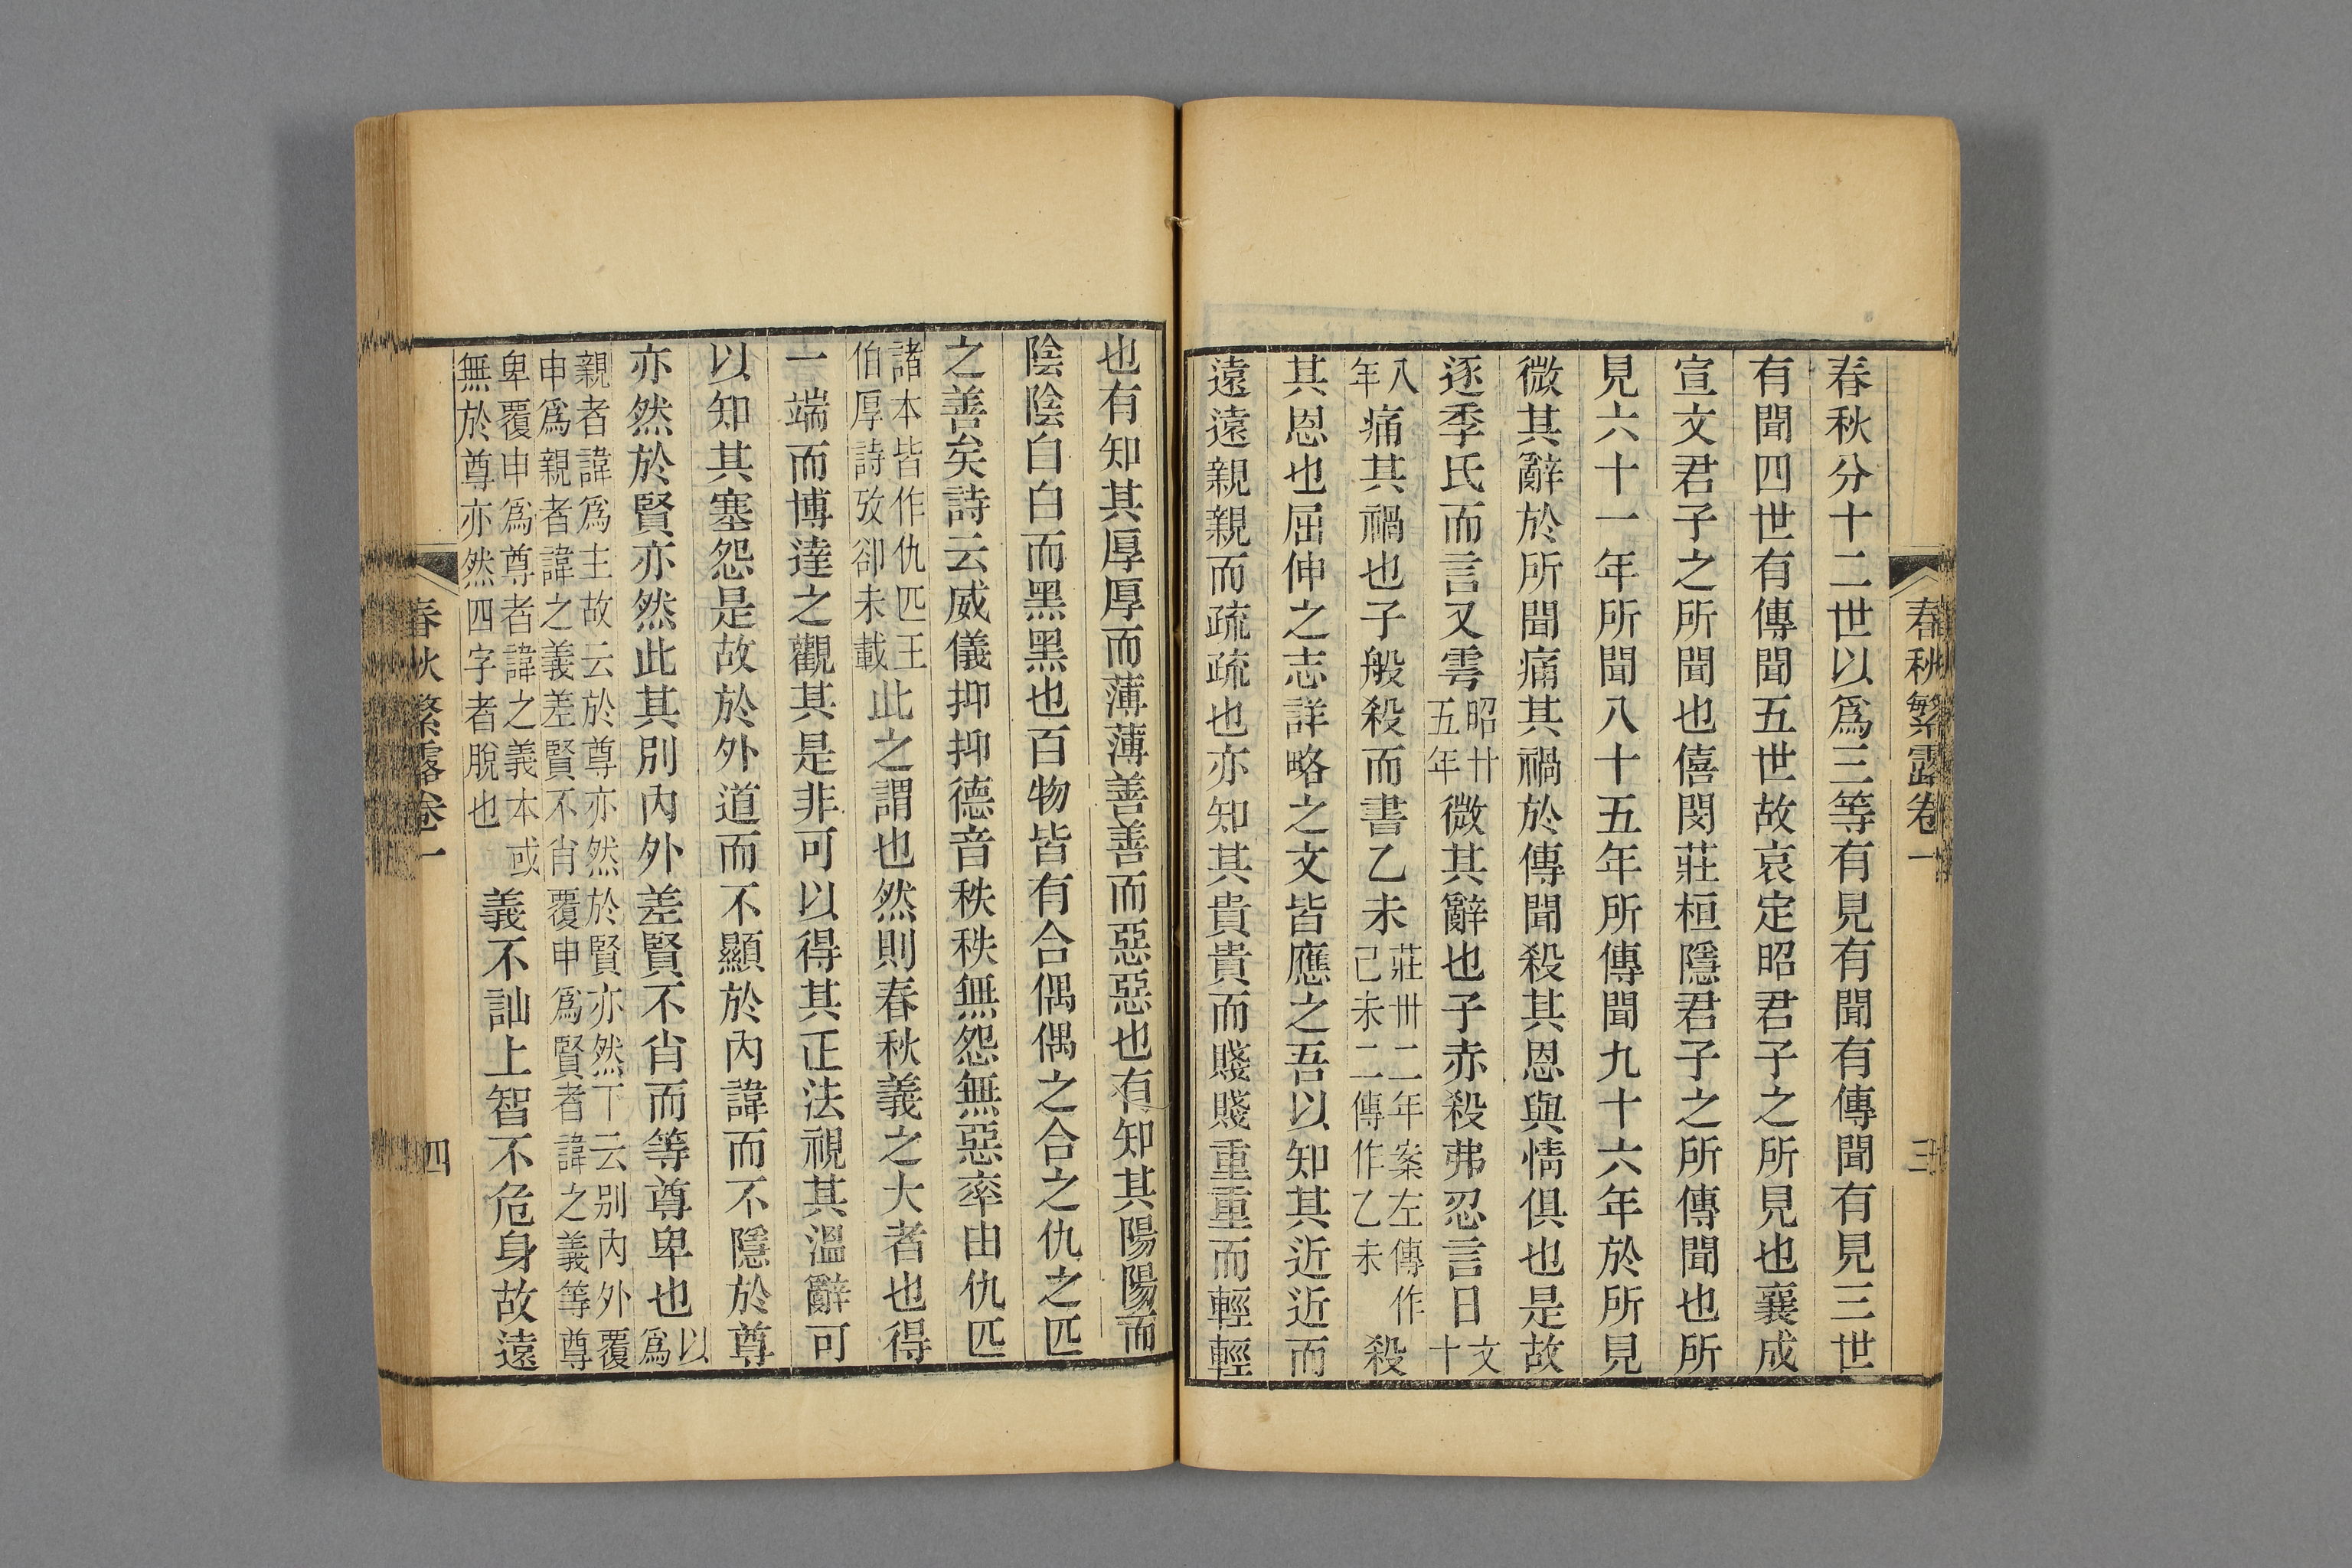 春秋繁露卷一 三
春秋分十二世以爲三等有見有聞有傳聞有見三世
有聞四世有傳聞五世故哀定昭君子之所見也襄成
宣文君子之所聞也僖閔莊桓隱君子之所傳聞也所
見六十一年所聞八十五年所傳聞九十六年於所見
微其辭於所聞痛其禍於傳聞殺其恩與情俱也是故
逐季氏而言又雩昭廿五年微其辭也子赤殺弗忍言日文十
八年痛其禍也子般殺而書乙未莊卅二年案左傳作己未二傳作乙未殺
其恩也屈伸之志詳略之文皆應之吾以知其近近而
遠遠親親而疏疏也亦知其貴貴而賤賤重重而輕輕
也有知其厚厚而薄薄善善而惡惡也有知其陽陽而
陰陰白白而黑黑也百物皆有合偶偶之合之仇之匹
之善矣詩云威儀抑抑德音秩秩無怨無惡率由仇匹
諸本皆作仇匹王伯厚詩攷卻未載此之謂也然則春秋義之大者也得
一端而博達之觀其是非可以得其正法視其溫辭可
以知其塞怨是故於外道而不顯於內諱而不隱於尊
亦然於賢亦然此其別內外差賢不肖而等尊卑也以爲
親者諱爲主故云於尊亦然於賢亦然下云別內外覆
申爲親者諱之義差賢不肖覆申爲賢者諱之義等尊
卑覆申爲尊者諱之義本或
無於尊亦然四字者脫也
義不訕上智不危身故遠
春秋繁露卷一 四